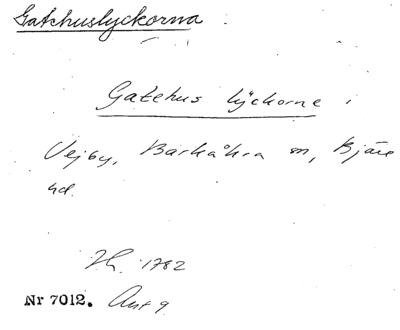 Gatehuslyckorna
Gatehus lyckorne i
Vejby, Barkåkra sn, Bjäre
hd.
Jb. 1782
Nr 7012. Ant 9